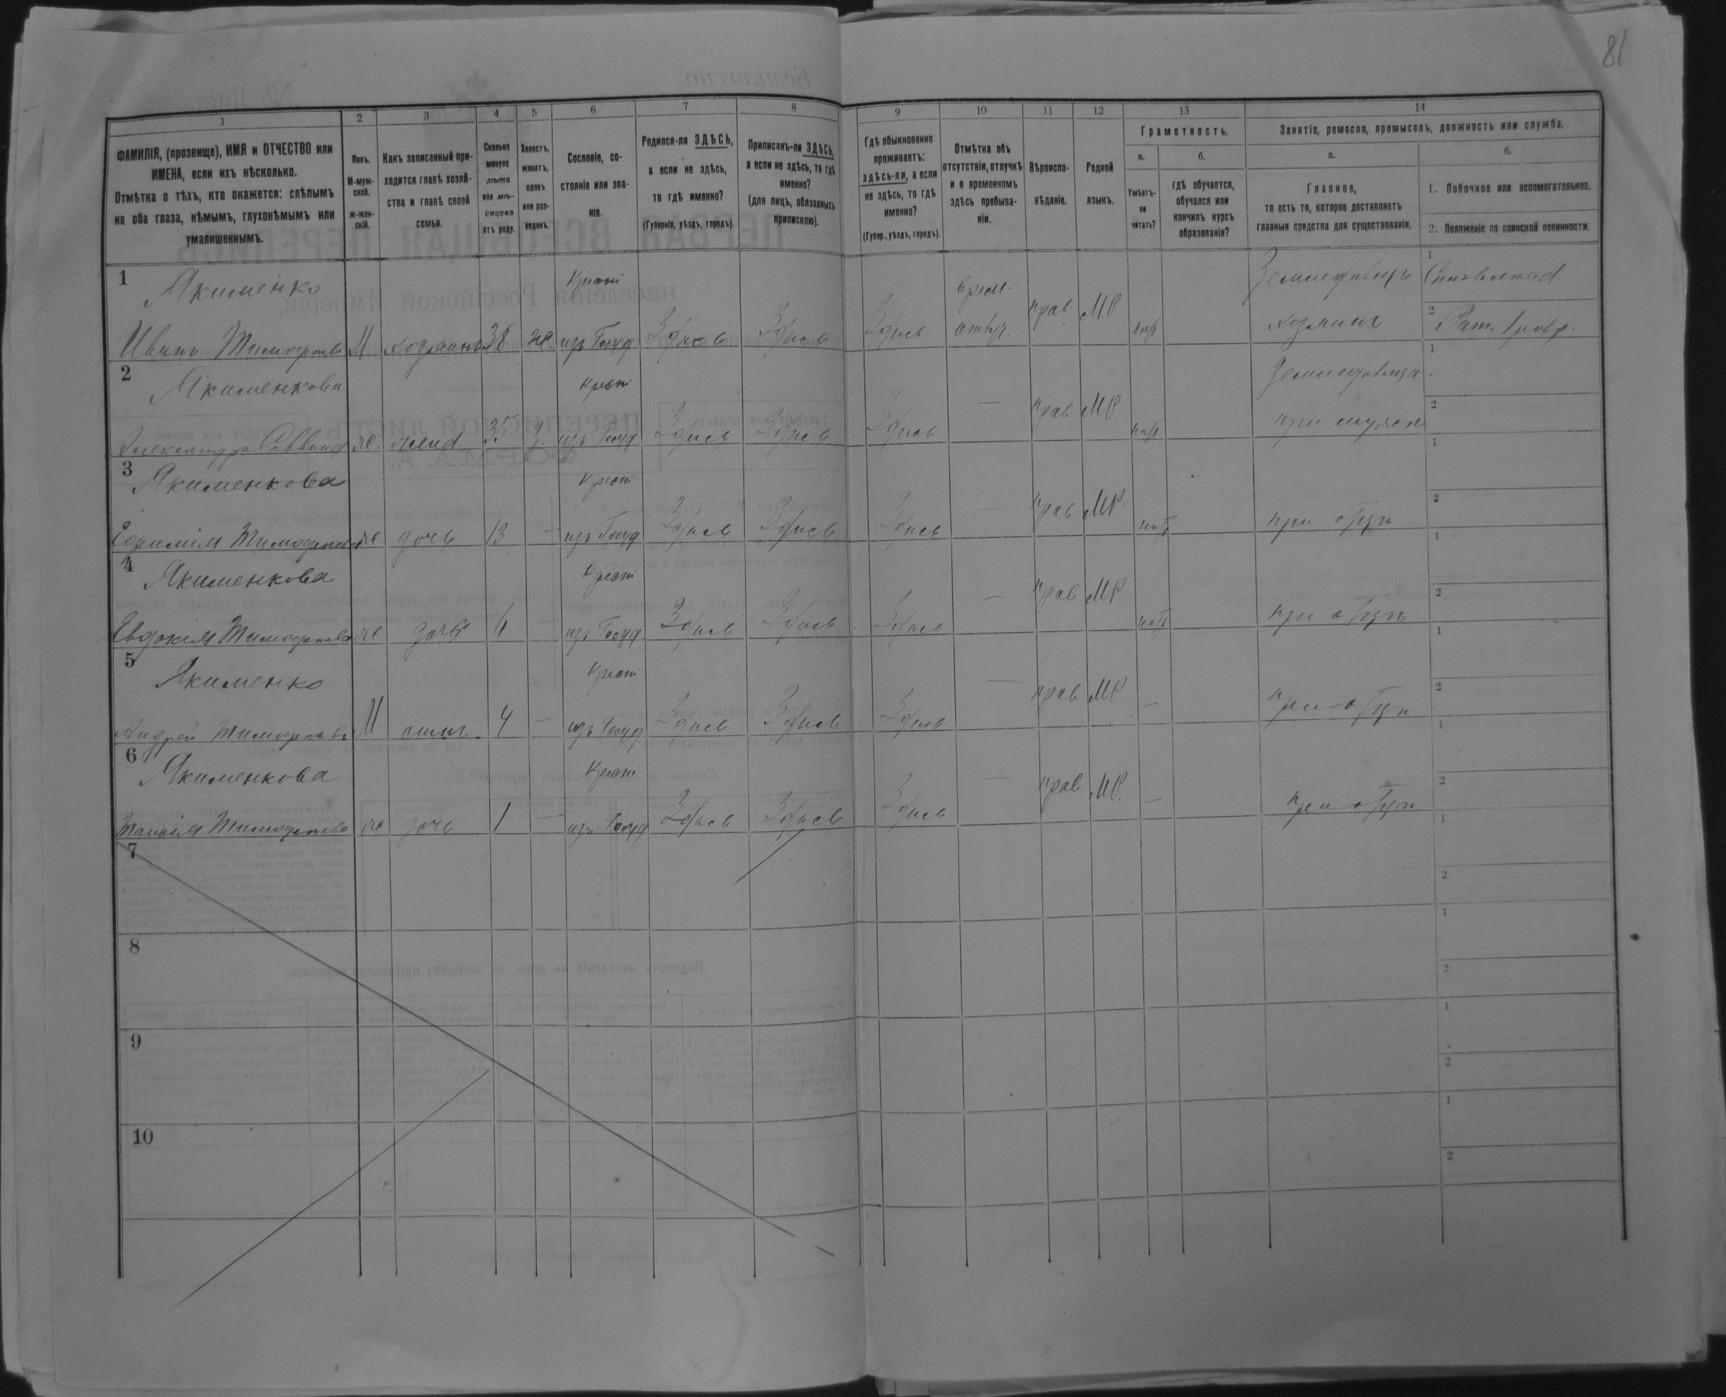 81
1 2 3 4 5 6 7 8 9 10 11 12 13 14
ФАМИЛІЯ, (прозвище), ИМЯ и ОТЧЕСТВО или ИМЕНА, если ихъ нѣсколько.
Отмѣтка о тѣхъ, кто окажется: слѣпымъ на оба глаза, нѣмымъ, глухонѣмымъ или умалишеннымъ.
Полъ.
М-мужской.
ж-женскій.
Какъ записанный приходится главѣ хозяйства и главѣ своей семьи.
Сколько минуло лѣтъ или мѣсяцевъ отъ роду.
Холостъ, женатъ, вдовъ или разведенъ.
Сословіе, состояніе или званіе.
Родился-ли ЗДѢСЬ, а если не здѣсь, то гдѣ именно?
(Губернія, уѣздъ, городъ).
Приписанъ-ли ЗДѢСЬ, а если не здѣсь, то гдѣ именно?
(для лицъ, обязанныхъ припиской).
Гдѣ обыкновенно проживаетъ: здѣсь-ли, а если не здѣсь, то гдѣ именно?
(Губер., уѣздъ, городъ).
Отмѣтка объ отсутствіи, отлучкѣ и о временномъ здѣсь пребываніи.
Вѣроисповѣданіе.
Родной языкъ.
Грамотность.
а.
Умѣетъ-ли читать?
б.
гдѣ обучается, обучался или кончилъ курсъ образованія?
Занятіе, ремесло, промыселъ, должность или служба.
а.
Главное,
то есть то, которое доставляетъ главныя средства для существованія.
б.
1. Побочное или вспомогательное.
2. Положеніе по воинской повинности.
1 Якименко Крест врем. прав М.Р. Земледѣлецъ 1
Иванъ М хозяинъ 38 же. изъ Госуд Здѣсь Здѣсь Здѣсь отлуч. нѣт хозяинъ 2 Рат.
2 Якименкова Крест — прав МР 1
Александра же. жена 35 з. изъ Госуд Здѣсь Здѣсь Здѣсь нѣт при мужѣ 2
3 Якименкова Крест — прав МР. 1
Ефимія Тимофеева же дочь 13 — изъ Госуд Здѣсь Здѣсь Здѣсь нѣт при отцѣ 2
4 Якименкова Крест — прав МР 1
Евдокія Тимофеева же дочь — изъ Госуд Здѣсь Здѣсь Здѣсь нѣт при отцѣ 2
5 Якименко Крест — прав МР — 1
Андрей Тимофеевъ М сынъ 4 — изъ Госуд. Здѣсь Здѣсь Здѣсь при отцѣ 2
6 Якименкова Крест — прав МР. — 1
Тимофеева же дочь 1 — изъ Госуд Здѣсь Здѣсь Здѣсь при отцѣ 2
7 1
2
8 1
2
9 1
2
10 1
2